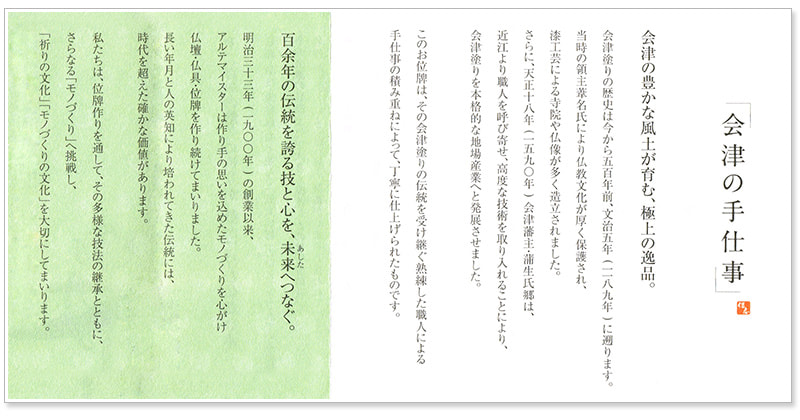 「会津の手仕事」
会津の豊かな風土が育む、極上の逸品。
会津塗りの歴史は今から五百年前、文治五年(一一八九年)に遡ります。
当時の領主葦名氏により仏教文化が厚く保護され、
漆工芸による寺院や仏像が多く造立されました。
さらに、天正十八年(一五九〇年)会津藩主・蒲生氏郷は、
近江より職人を呼び寄せ、高度な技術を取り入れることにより、
会津塗りを本格的な地場産業へと発展させました。
このお位牌は、その会津塗りの伝統を受け継ぐ熟練した職人による
手仕事の積み重ねによって、丁寧に仕上げられたものです。
百余年の伝統を誇る技と心を、未来へつなぐ。
あした
明治三十三年(一九〇〇年)の創業以来、
アルテマイスターは作り手の思いを込めたモノづくりを心がけ
仏壇・仏具・位牌を作り続けてまいりました。
長い年月と人の英知により培われてきた伝統には、
時代を超えた確かな価値があります。
私たちは、位牌作りを通して、その多様な技法の継承とともに、
さらなる「モノづくり」へ挑戦し、
「祈りの文化」「モノづくりの文化」を大切にしてまいります。